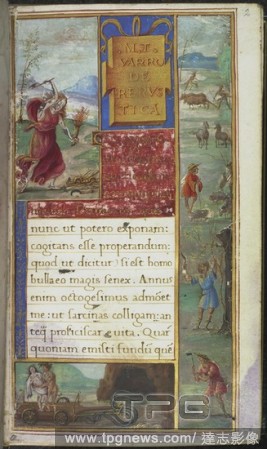 2
M.T.
VARRO
DE
RE RVS
TICA
nunc ut potero exponam:
cogitans esse properandum:
quod ut dicitur si est homo
bulla eo magis senex. Annus
enim octogesimus admõet
me: ut sarcinas colligam: an
teq̃ proficiscar e uita. Quar̃
quoniam emisti fundũ quẽ
TPG
www.tpgnews.com/ 達志影像